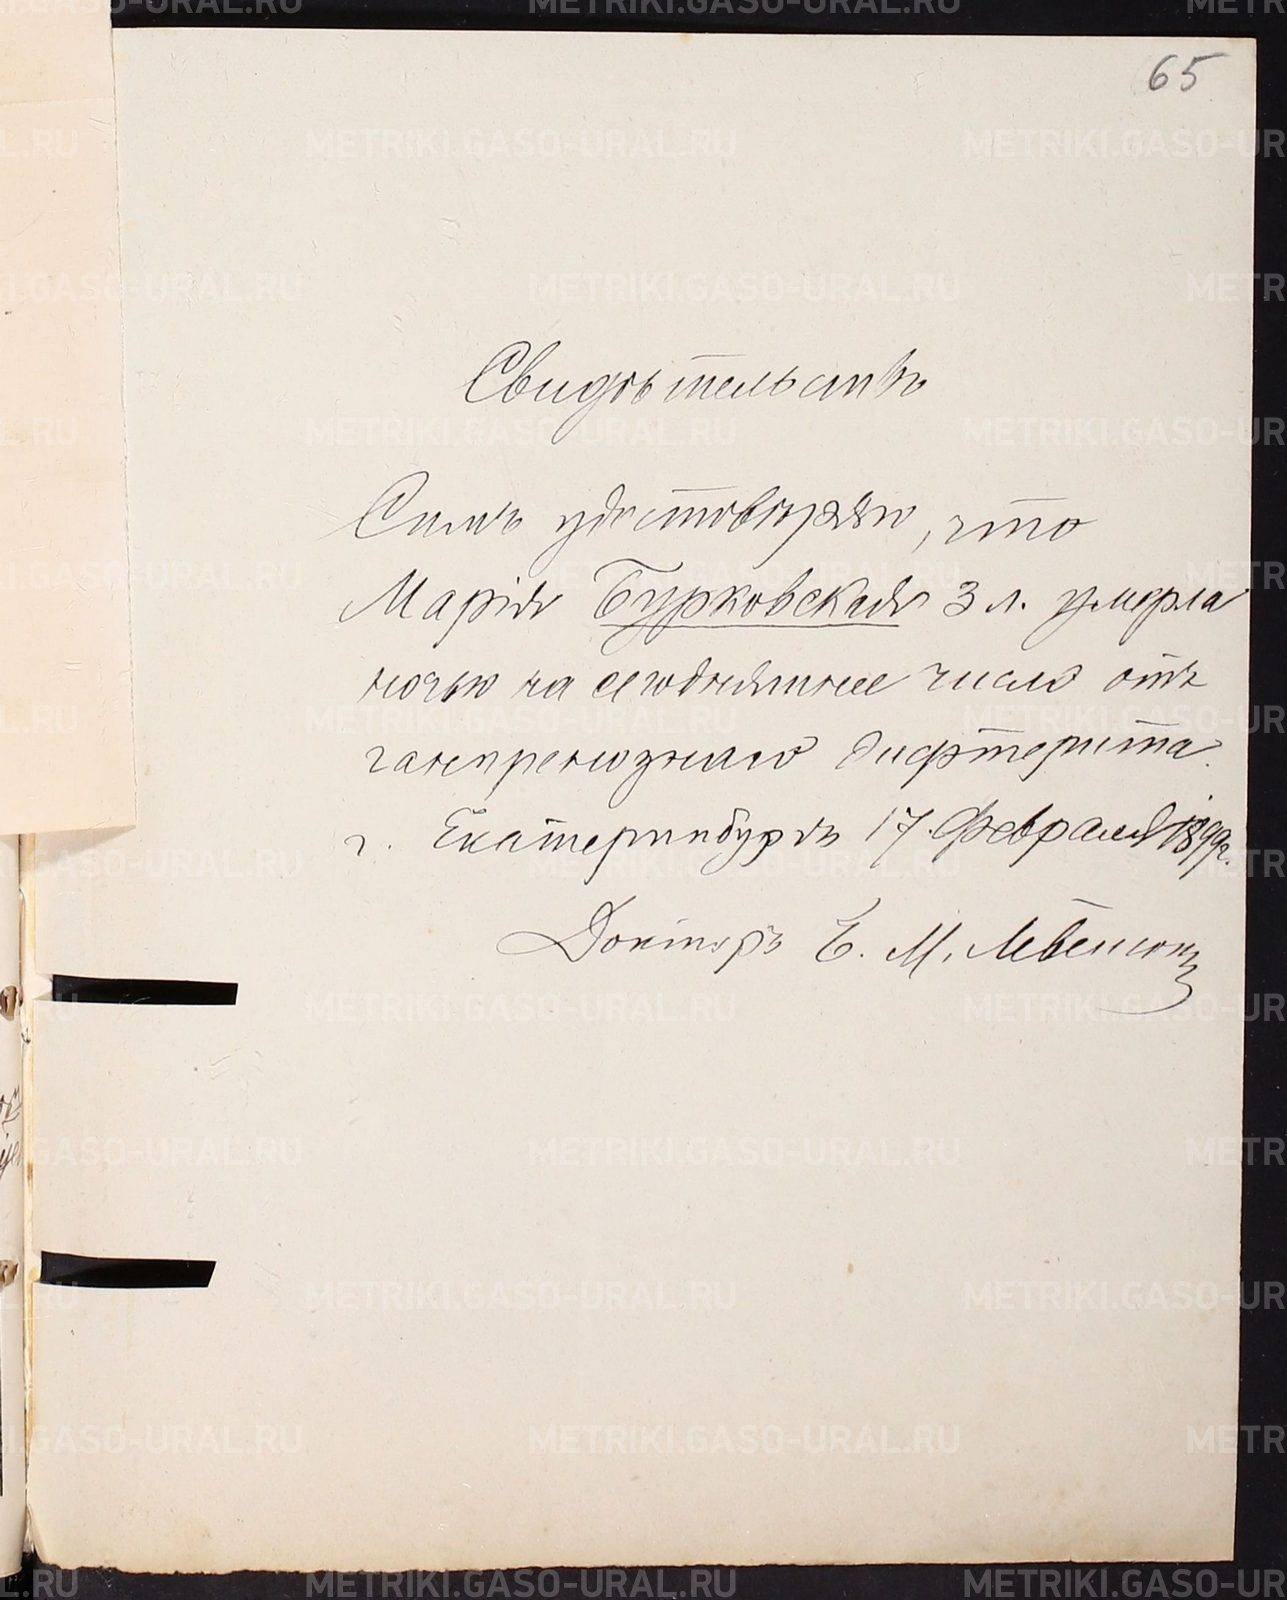 65
Свидѣтельство
Симъ удостовѣряю, что
Марія Бурковская 3 л. умерла
ночью на сегодняшнее число отъ
гангренознаго дифтерита.
г. Екатеринбургъ 17 Февраля 1899 г.
Докторъ Е. М. Левенсонъ
METRIKI.GASO-URAL.RU